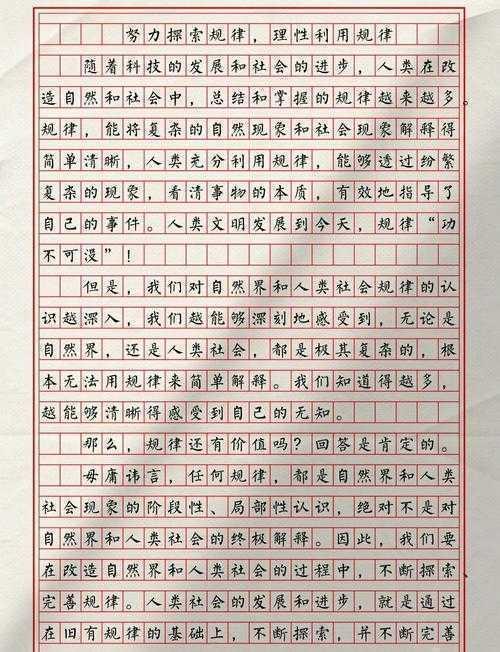 努力探索规律，理性利用规律
随着科技的发展和社会的进步，人类在改
造自然和社会中，总结和掌握的规律越来越多。
规律，能将复杂的自然现象和社会现象解释得
简单清晰，人类充分利用规律，能够透过纷繁
复杂的现象，看清事物的本质，有效地指导了
自己的事件。人类文明发展到今天，规律“功
不可没”！
但是，我们对自然界和人类社会规律的认
识越深入，我们越能够深刻地感受到，无论是
自然界，还是人类社会，都是极其复杂的，根
本无法用规律来简单解释。我们知道得越多，
越能够清晰得感受到自己的无知。
那么，规律还有价值吗？回答是肯定的。
毋庸讳言，任何规律，都是自然界和人类
社会现象的阶段性、局部性认识，绝对不是对
自然界和人类社会的终极解释。因此，我们要
在改造自然界和人类社会的过程中，不断探索、
完善规律。人类社会的发展和进步，就是通过
在旧有规律的基础上，不断探索，并不断完善